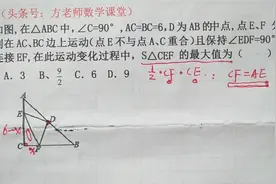 (头条号：方老师数学课堂)
如图,在△ABC中,∠C=90°,AC=BC=6,D为AB的中点,点E、F
在AC、BC边上运动(点E不与点A、C重合)且保持∠EDF=90°
连接EF,在此运动变化过程中,S△CEF的最大值为( )
A. 3 B. 9/2 C. 6 D. 9
1/2·CF·CE: CF=AE
A
E
D
6-x
x
C
x
F
B